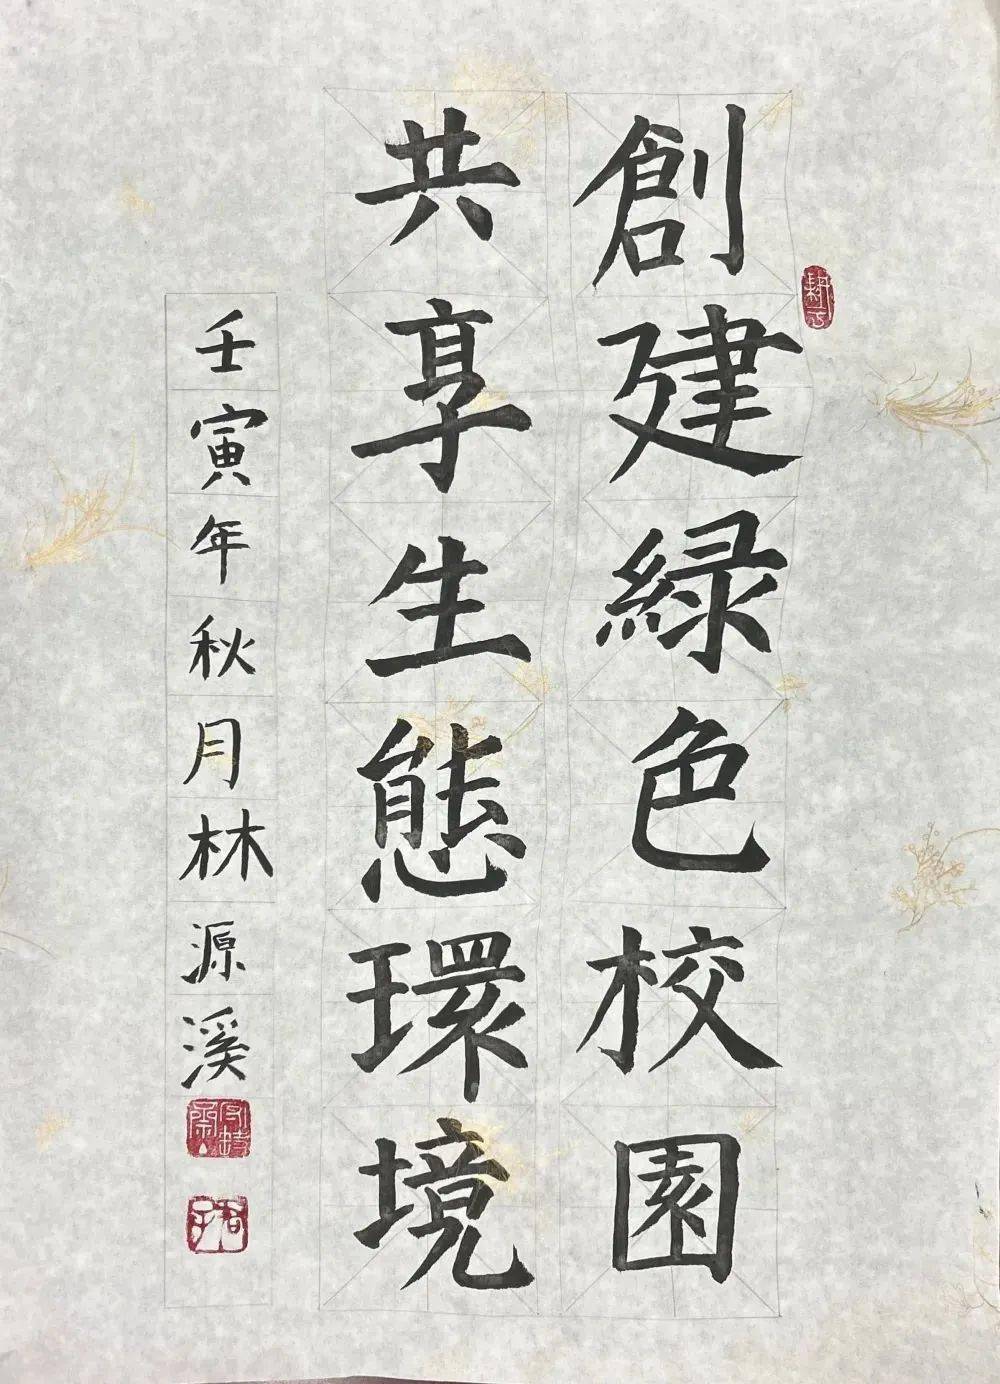 創建緑色校園
共享生態環境
壬寅年秋月林源溪